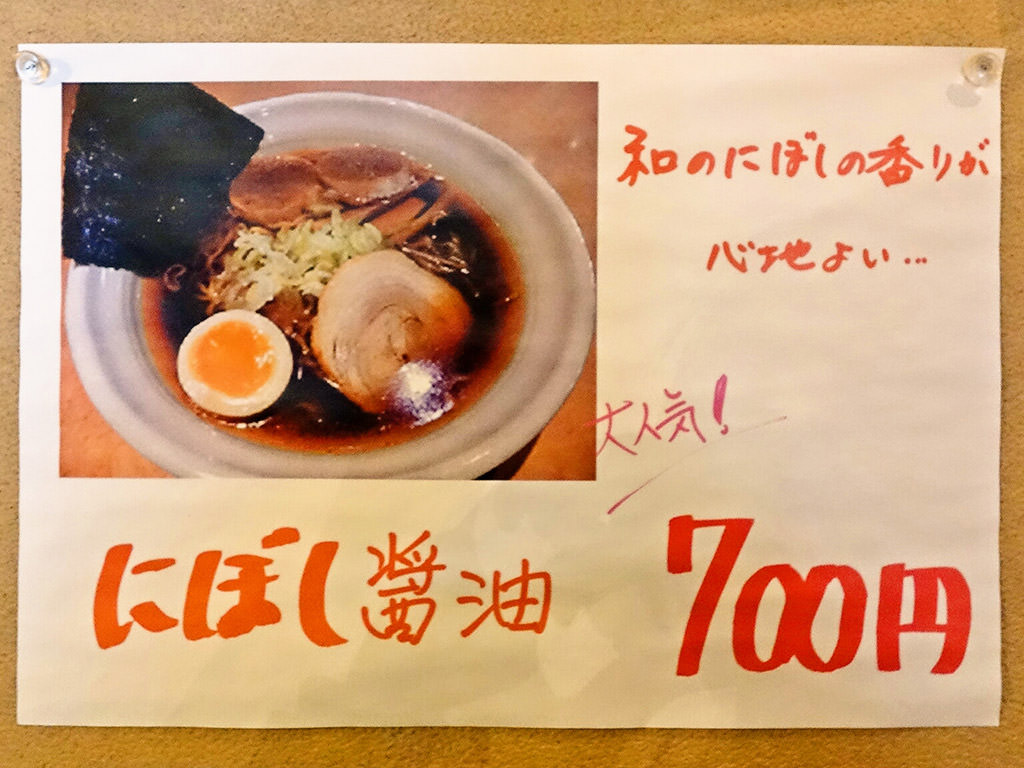 和のにぼしの香りが
心地よい…
大人気!
にぼし醤油
700円